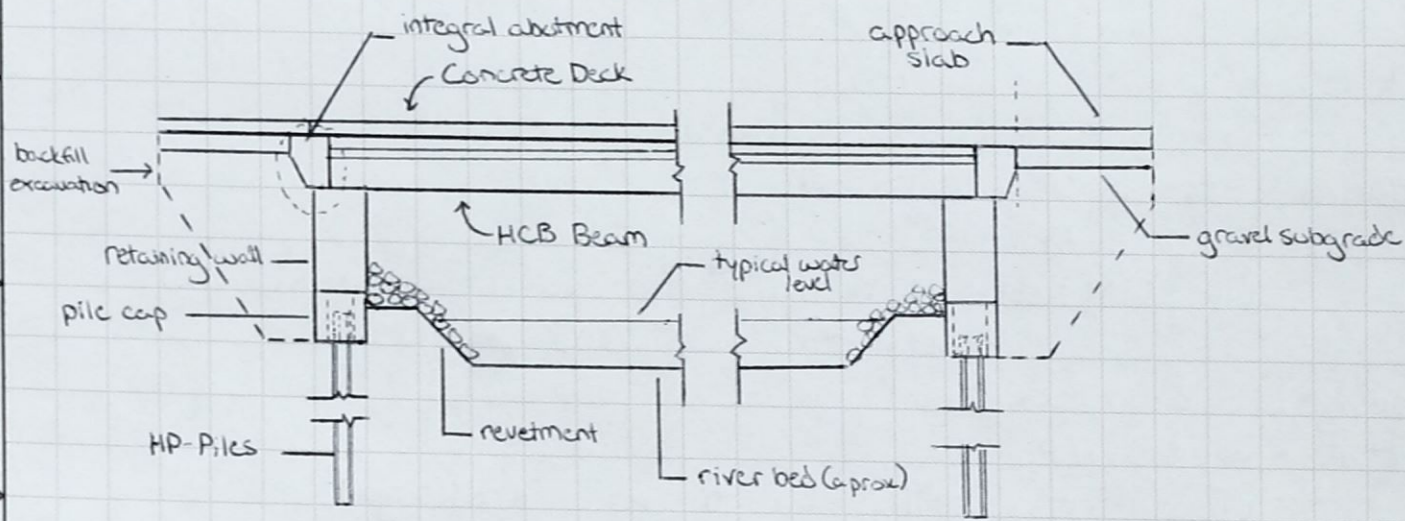 integral abutment
Concrete Deck
approach
slab
backfill
excavation
HCB Beam
retaining wall
typical water
level
gravel subgrade
pile cap
revetment
HP-Piles
river bed (aprox)